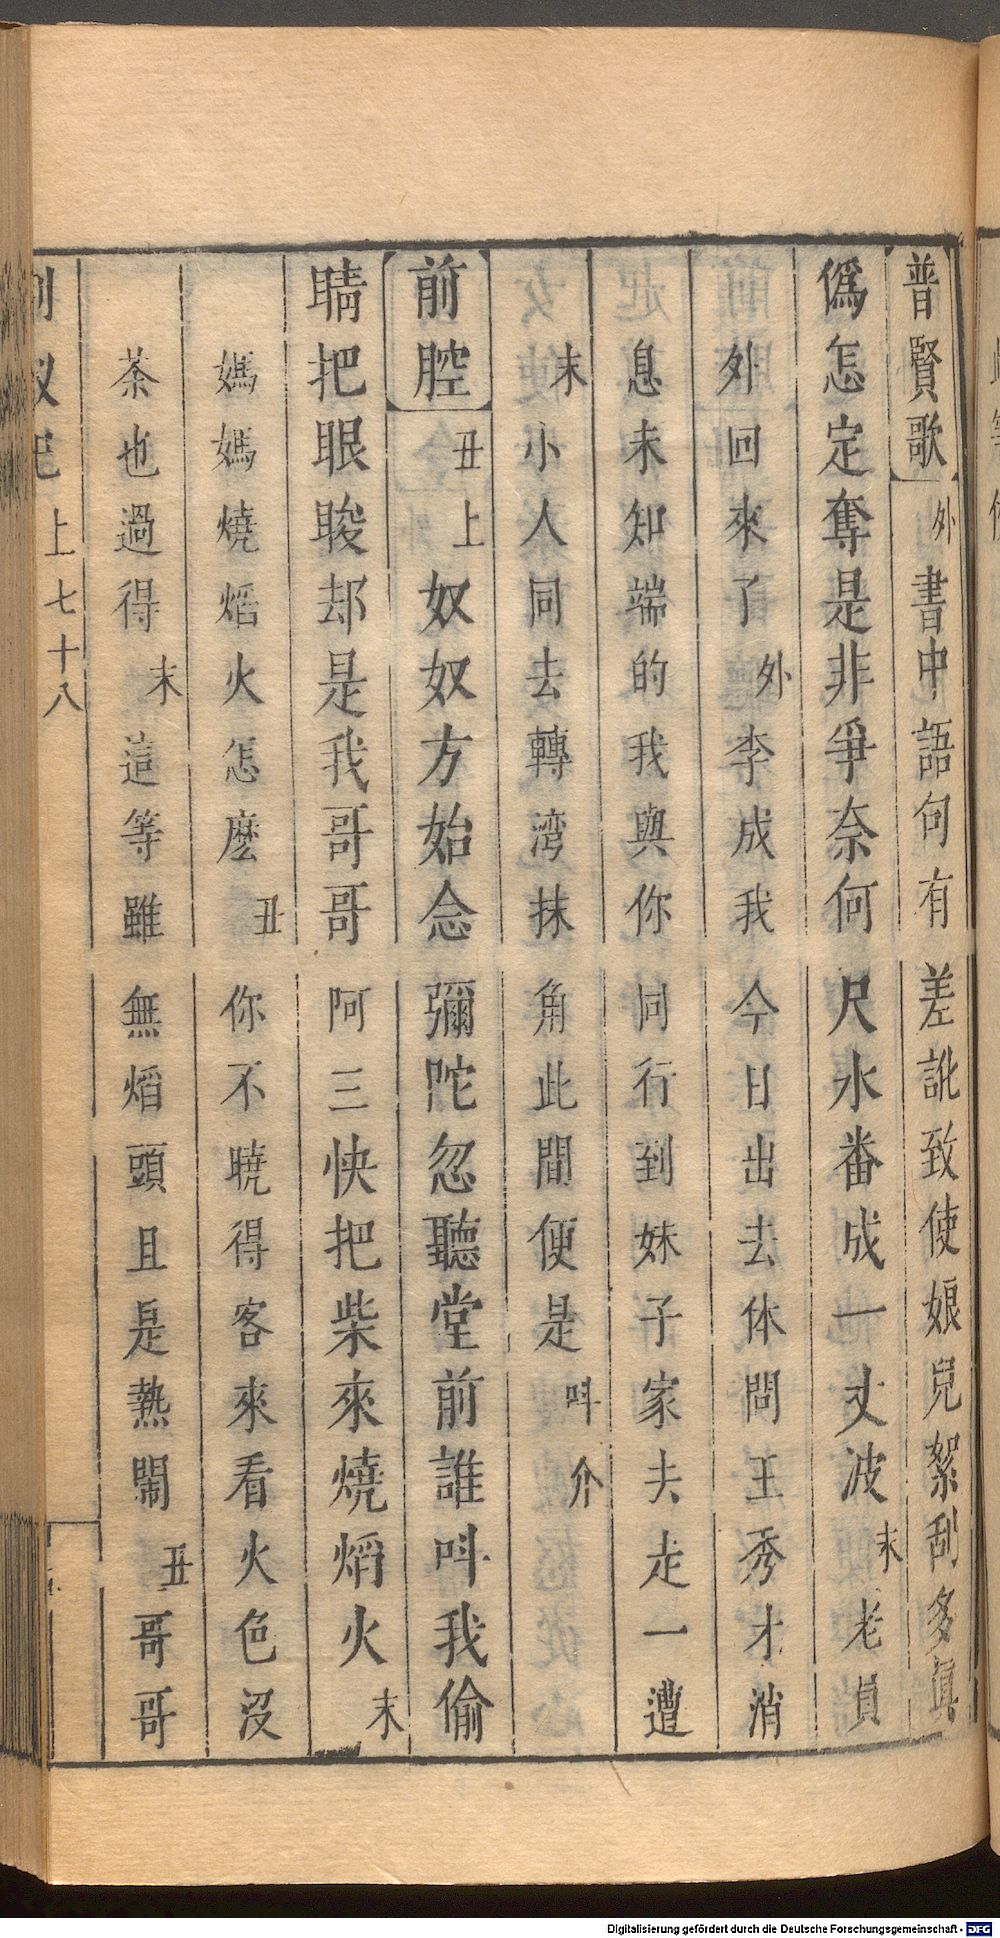 普賢歌外書中語句有差訛致使娘兒絮刮多眞
僞怎定奪是非爭奈何尺水番成一丈波末老員
外回來了外李成我今日出去体問王秀才消
息未知端的我與你同行到妹子家去走一遭
末小人同去轉湾抹角此間便是呌介
前腔丑上奴奴方始念彌陀忽聽堂前誰呌我偷
睛把眼睃却是我哥哥阿三快把柴來燒熖火末
媽媽燒熖火怎麽丑你不曉得客來看火色沒
茶也過得末這等雖無熖頭且是熱閙丑哥哥
上七十八
Digitalisierung gefördert durch die Deutsche Forschungsgemeinschaft - DFG